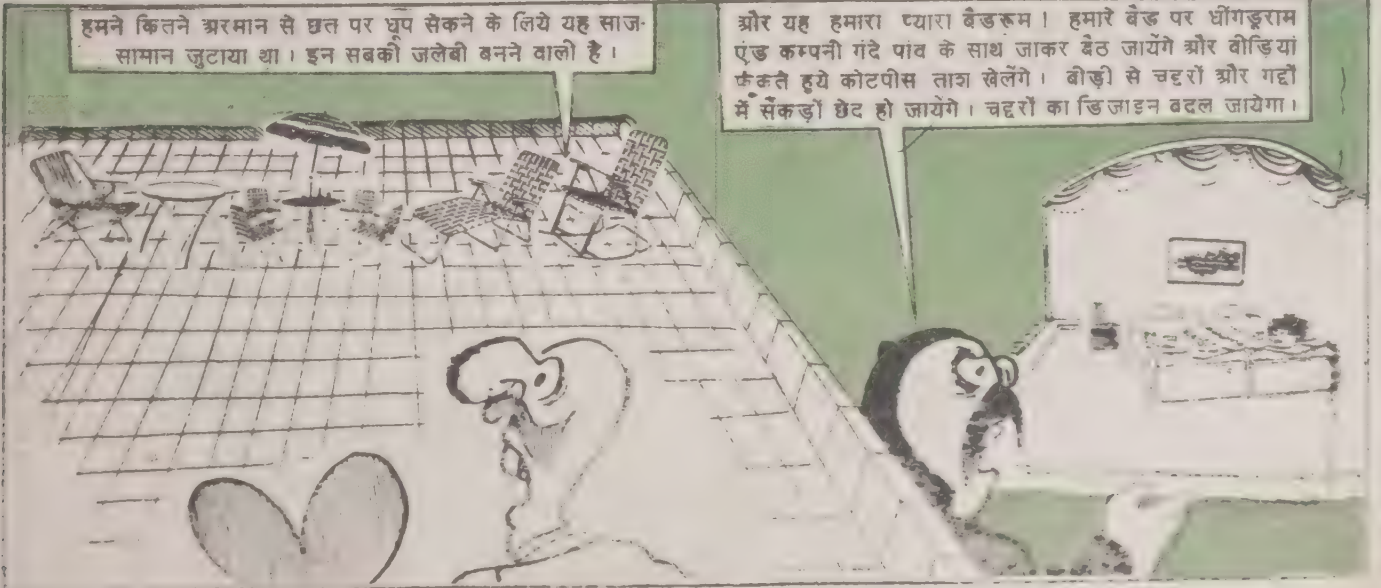 हमने कितने अरमान से छत पर धूप सेकने के लिये यह साज-
सामान जुटाया था। इन सबकी जलेबी बनने वाली है।
और यह हमारा प्यारा बैडरूम! हमारे बैड पर धींगड़ूराम
एंड कम्पनी गंदे पांव के साथ जाकर बैठ जायेंगे और बीड़ियां
फूंकते हुये कोटपीस ताश खेलेंगे। बीड़ी से चद्दरों और गद्दों
में सैंकड़ों छेद हो जायेंगे। चद्दरों का डिजाइन बदल जायेगा।